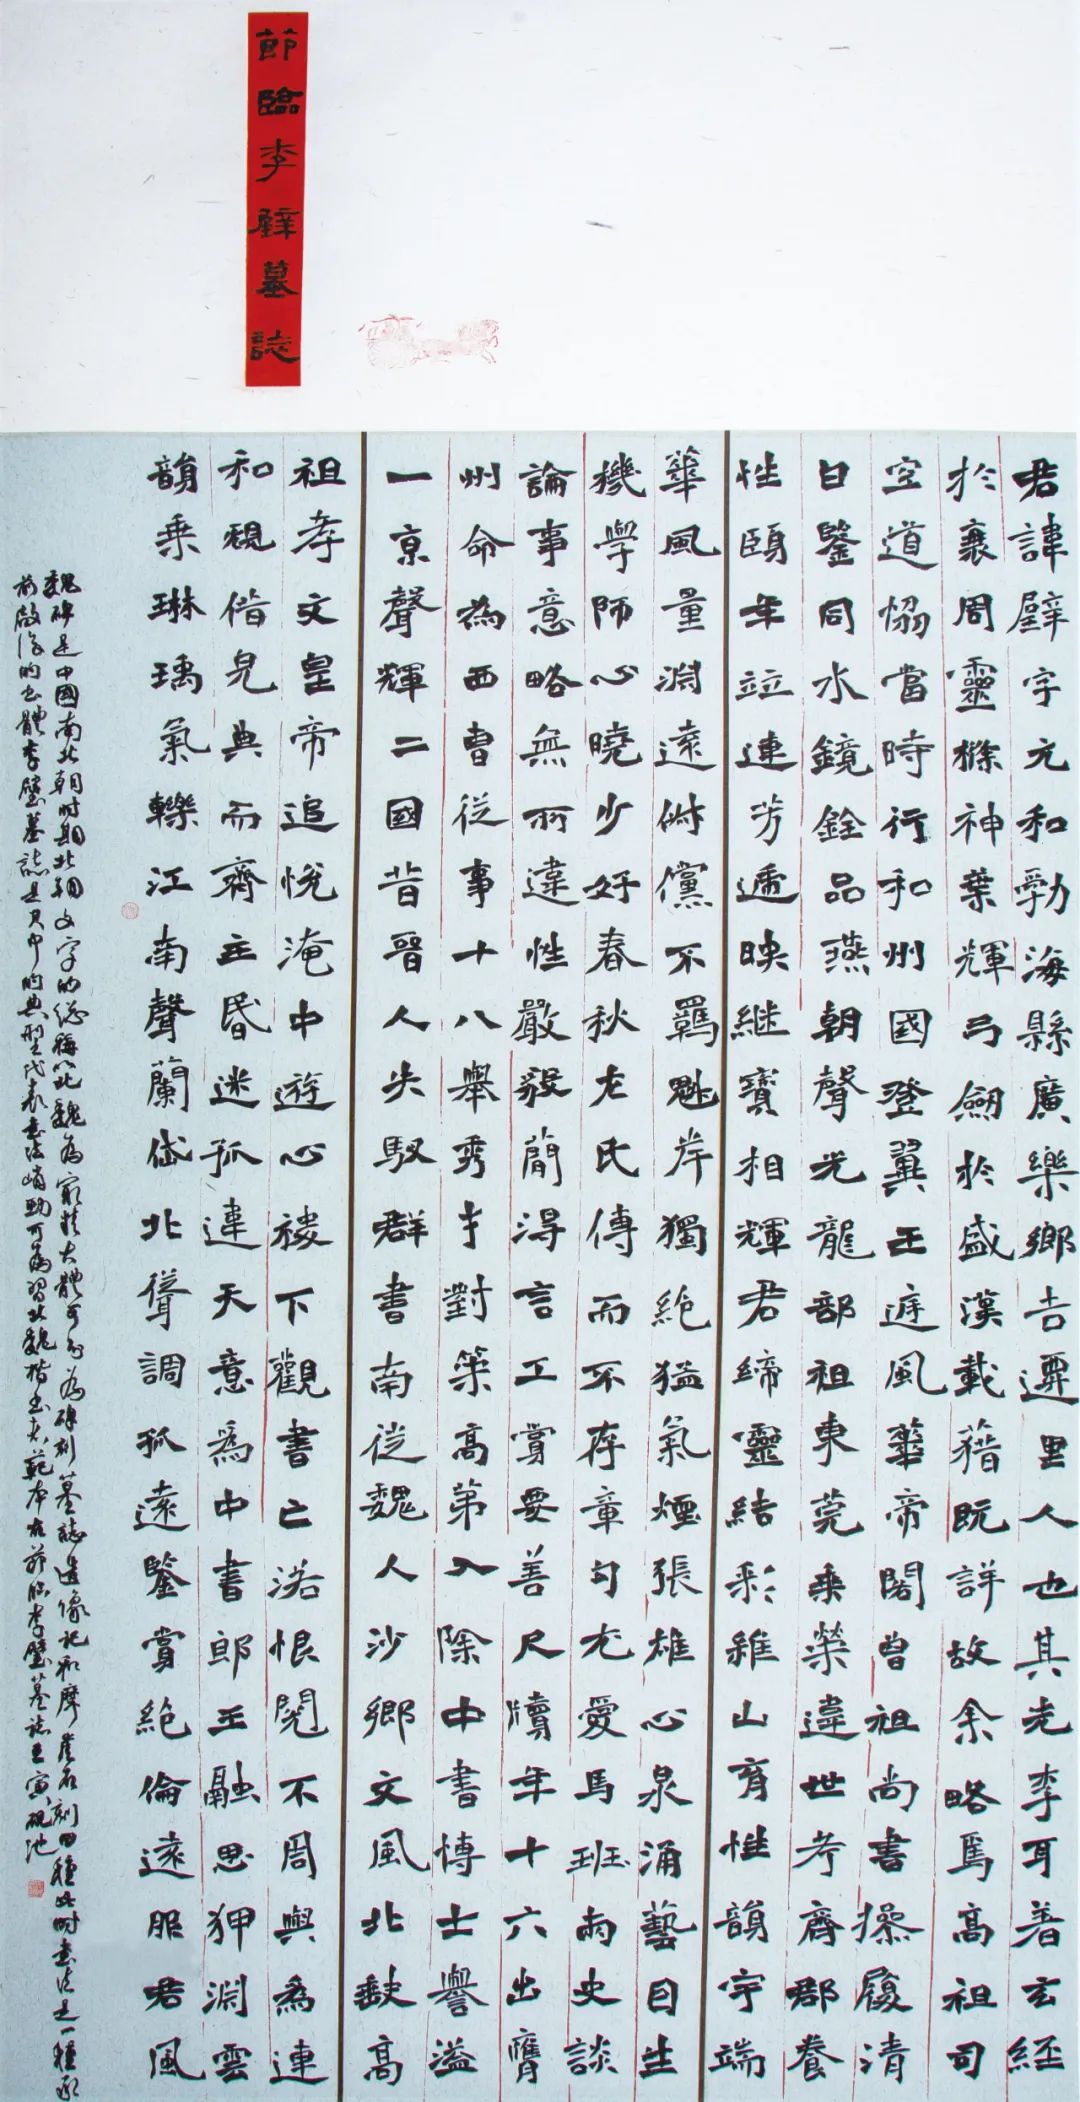 節臨李璧墓誌
君諱璧字元和勃海縣廣樂鄉吉遷里人也其先李耳著玄經
於衰周靈櫾神葉輝弓劒於盛漢載藉既詳故余略焉高祖司
空道協當時行和州國登翼王遲風華帝閣曾祖尚書操履清
白鑒同水鏡銓品燕朝聲光龍部祖東莞乘榮違世考齊郡養
性頤年竝連芳遞映繼寶相輝君締靈結彩維山育性韻宇端
華風量淵遠俶儻不羈魁岸獨絕猛氣煙張雄心泉涌藝目生
機學師心曉少好春秋左氏傳而不存章句尤愛馬班兩史談
論事意略無所違性嚴毅簡得言工賞要善尺牘年十六出膺
州命為西曹從事十八舉秀才對策高第入除中書博士譽溢
一京聲輝二國昔晉人失馭群書南徙魏人沙鄉文風北缺高
祖孝文皇帝追悅淹中遊心稷下觀書亡落恨閱不周與為連
和規借完典而齊主昏迷孤違天意為中書郎王融思狎淵雲
韻乘琳瑀氣轢江南聲蘭岱北聳調孤遠鑒賞絕倫遠服君風
魏碑是中國南北朝時期北朝文字的總稱以北魏為最精大體可分為碑刻墓誌造像記和摩崖石刻四種此時書法是一種承
前啟後的書體李璧墓誌是其中的典型代表書法峭勁可為習北魏楷書範本右節臨李璧墓誌壬寅硯池